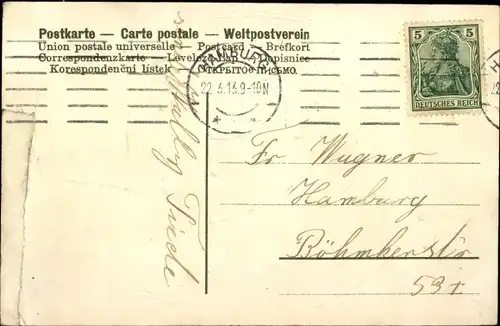 Postkarte – Carte postale – Weltpostverein
Union postale universelle – Postcard – Brefkort
Correspondenzkarte – Levelező-Lap
Korespondenční lístek – ОТКРЫТОЕ ПИСЬМО.
HAMBURG
22.3.13.9-10N
5 5
DEUTSCHES REICH
Fr Wagner
Hamburg
Böhmkerstr
53 I